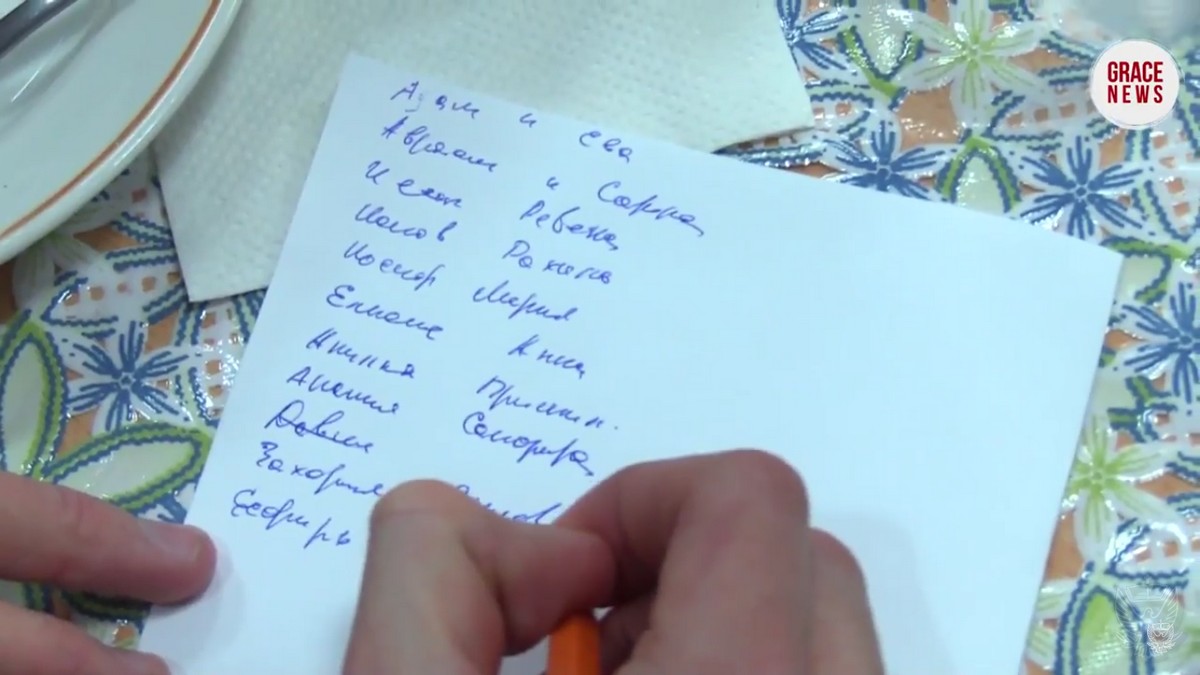 GRACE
NEWS
Адам и ева
Авраам и Сарра
Исаак Ревека
Иаков Рахиль
Иосиф Мария
Анна
Акилла Прискил.
Анания Сапфира
Давид
Захария
Есфирь